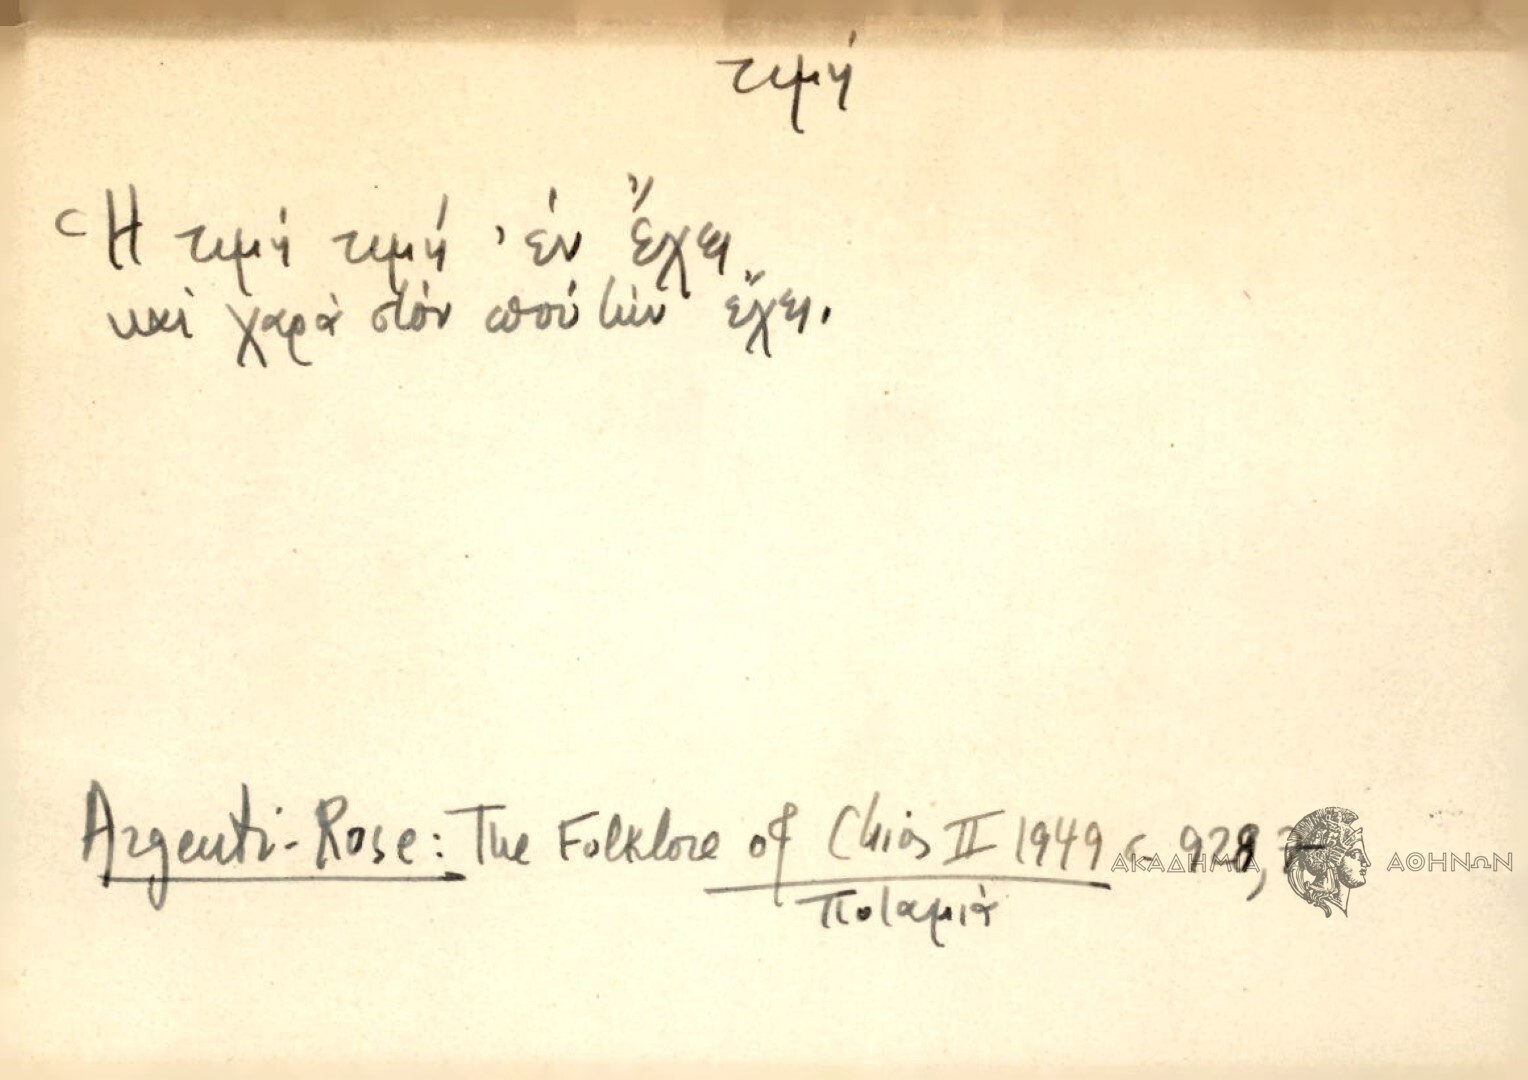 τιμή
Ἡ τιμή τιμή 'έν ἔχει
καὶ χαρὰ στὸν ἀπού τὴν ἔχει.
Argenti-Rose: The Folklore of Chios II 1949 σ. 928, 7
Ποταμιὰ
ΑΚΑΔΗΜΙΑ ΑΘΗΝΩΝ